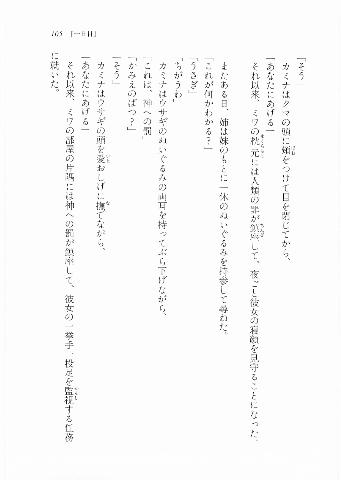 105　［一日目］
「そう」
カミナはクマの頭に頬をつけて目を閉じてから、
「あなたにあげる」
それ以来、ミワの枕元には人類の罪が鎮座して、夜ごと彼女の寝顔を見守ることになった。
またある日、姉は妹のもとに一体のぬいぐるみを持参して尋ねた。
「これが何かわかる？」
「うさぎ」
「ちがうわ」
カミナはウサギのぬいぐるみの両耳を持ってぶら下げながら、
「これは、神への罰」
「かみえのばつ？」
「そう」
カミナはウサギの頭を愛おしげに撫でながら、
「あなたにあげる」
それ以来、ミワの部屋の片隅には神への罰が鎮座して、彼女の一挙手一投足を監視する任務
に就いた。